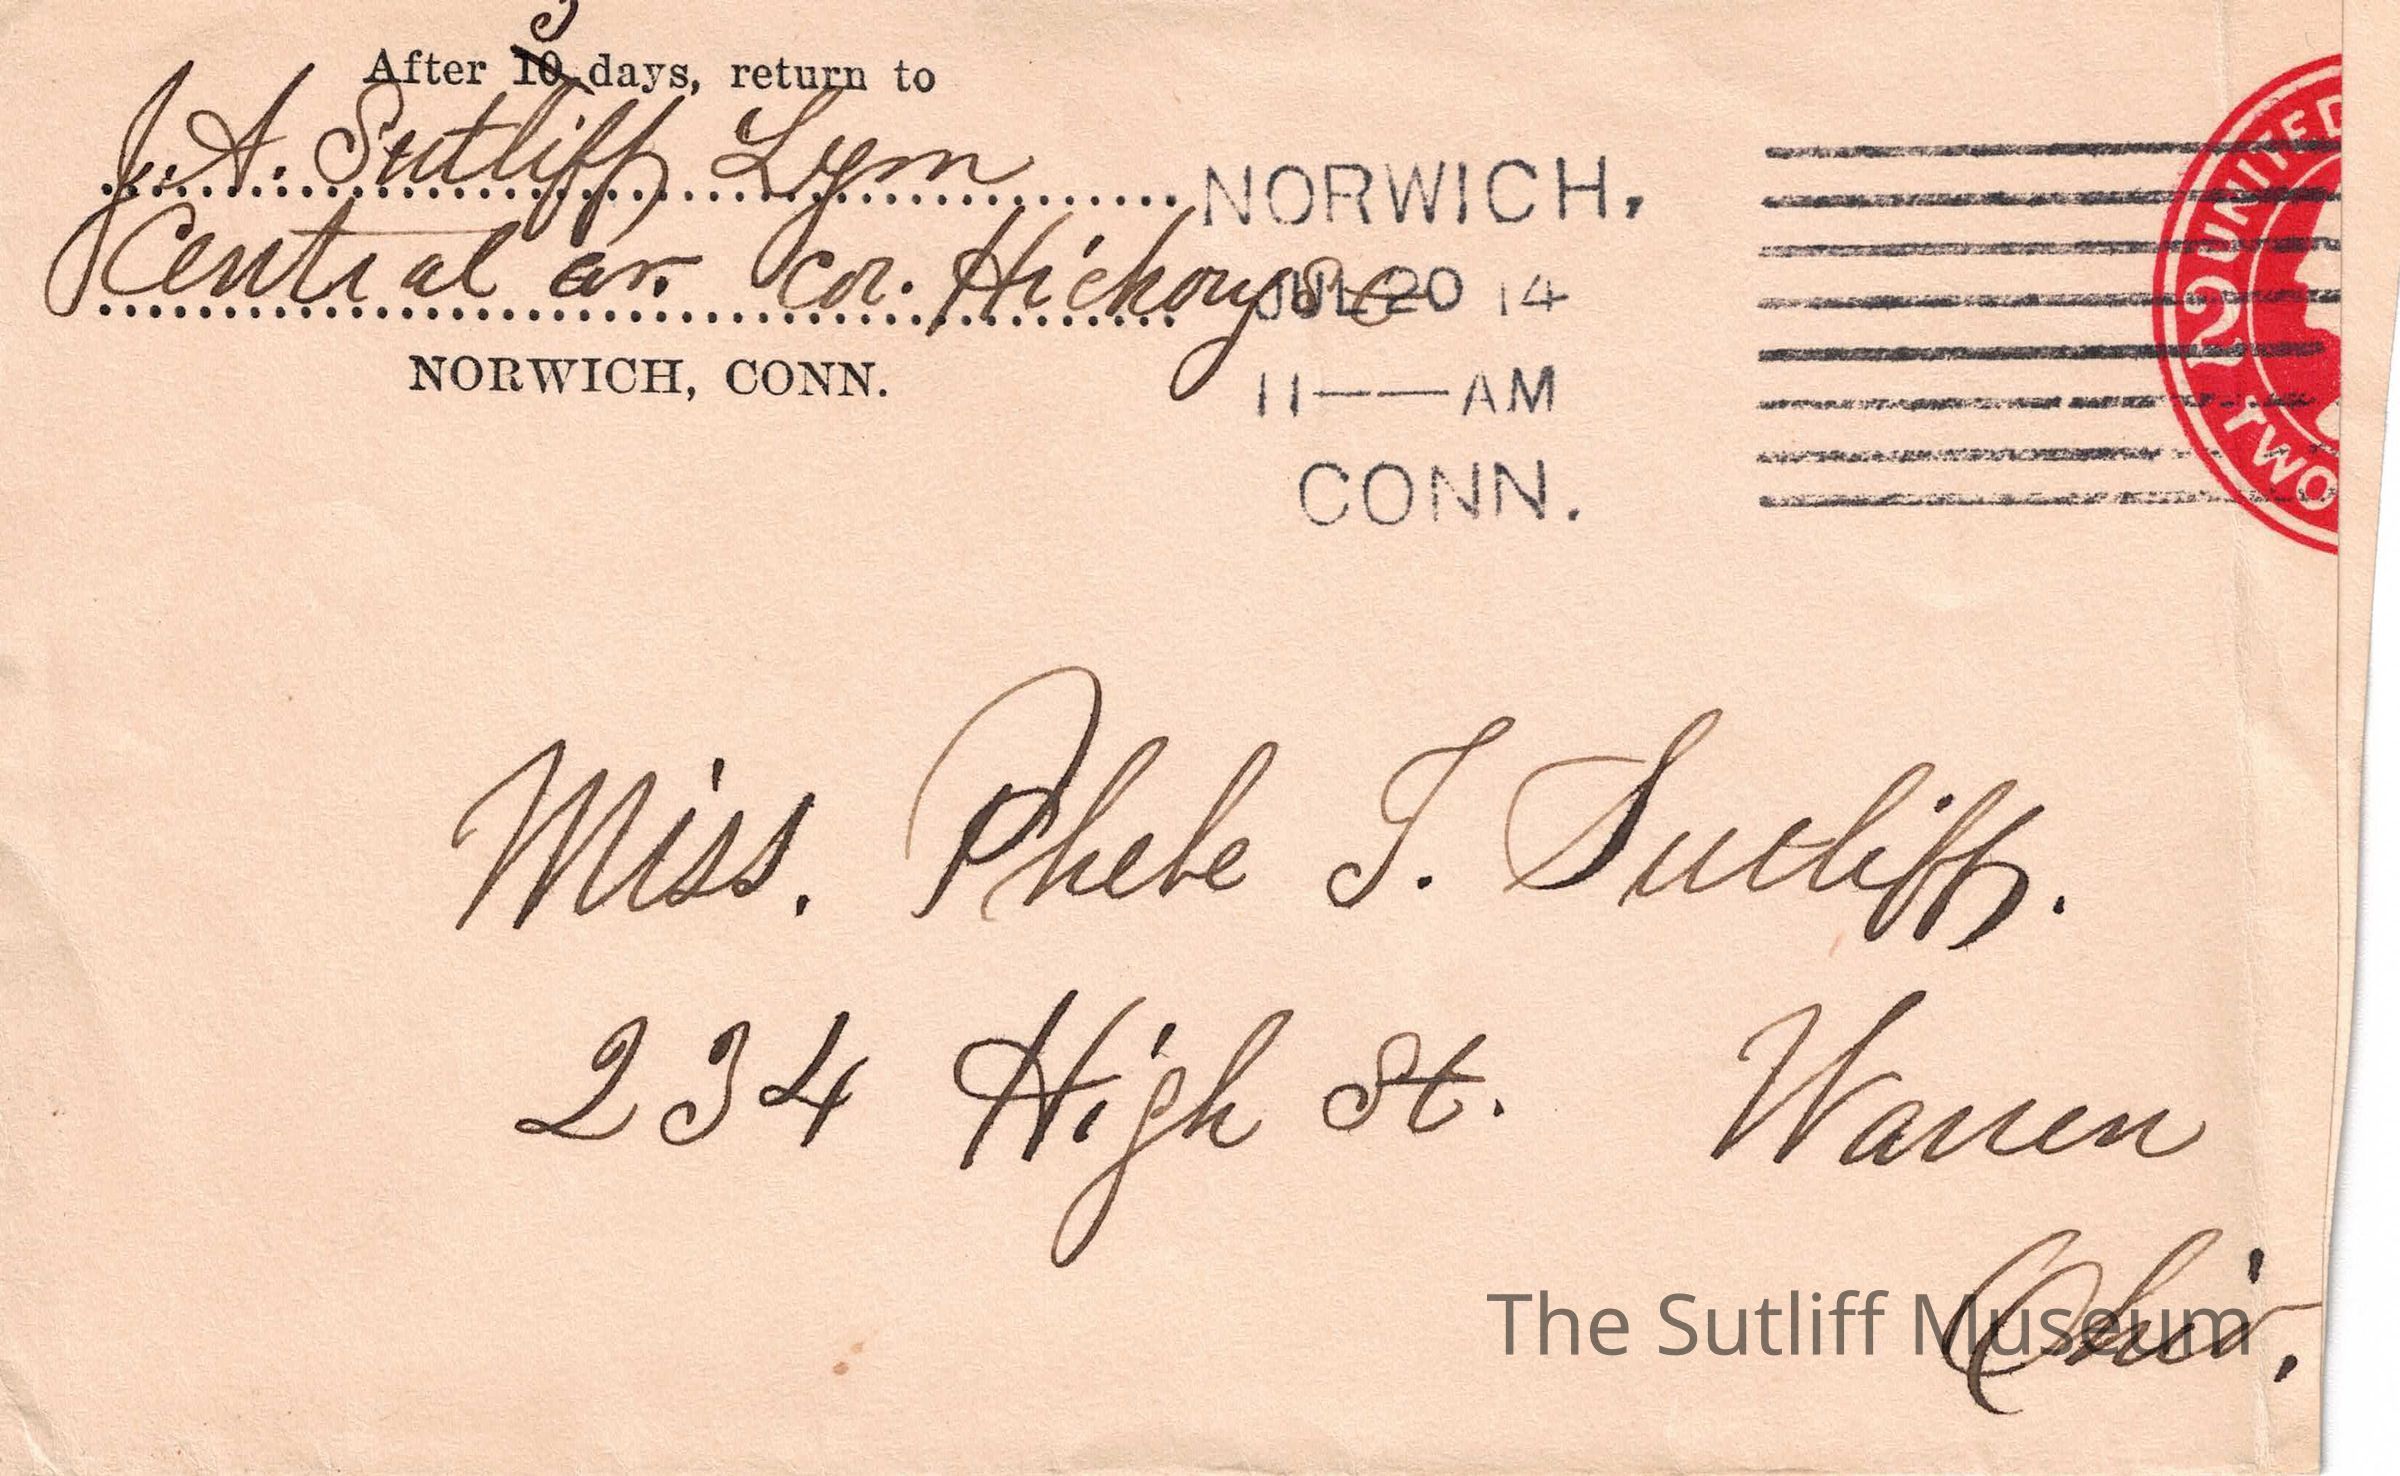 After 10 days, return to
J. A. Sutliff Lym
Central av. Cor. Hickory St
NORWICH, CONN.
NORWICH,
JUL 20 14
11——AM
CONN.
UNITED
2
TWO
Miss. Phebe T. Sutliff.
234 High St. Warren
Ohio.
The Sutliff Museum